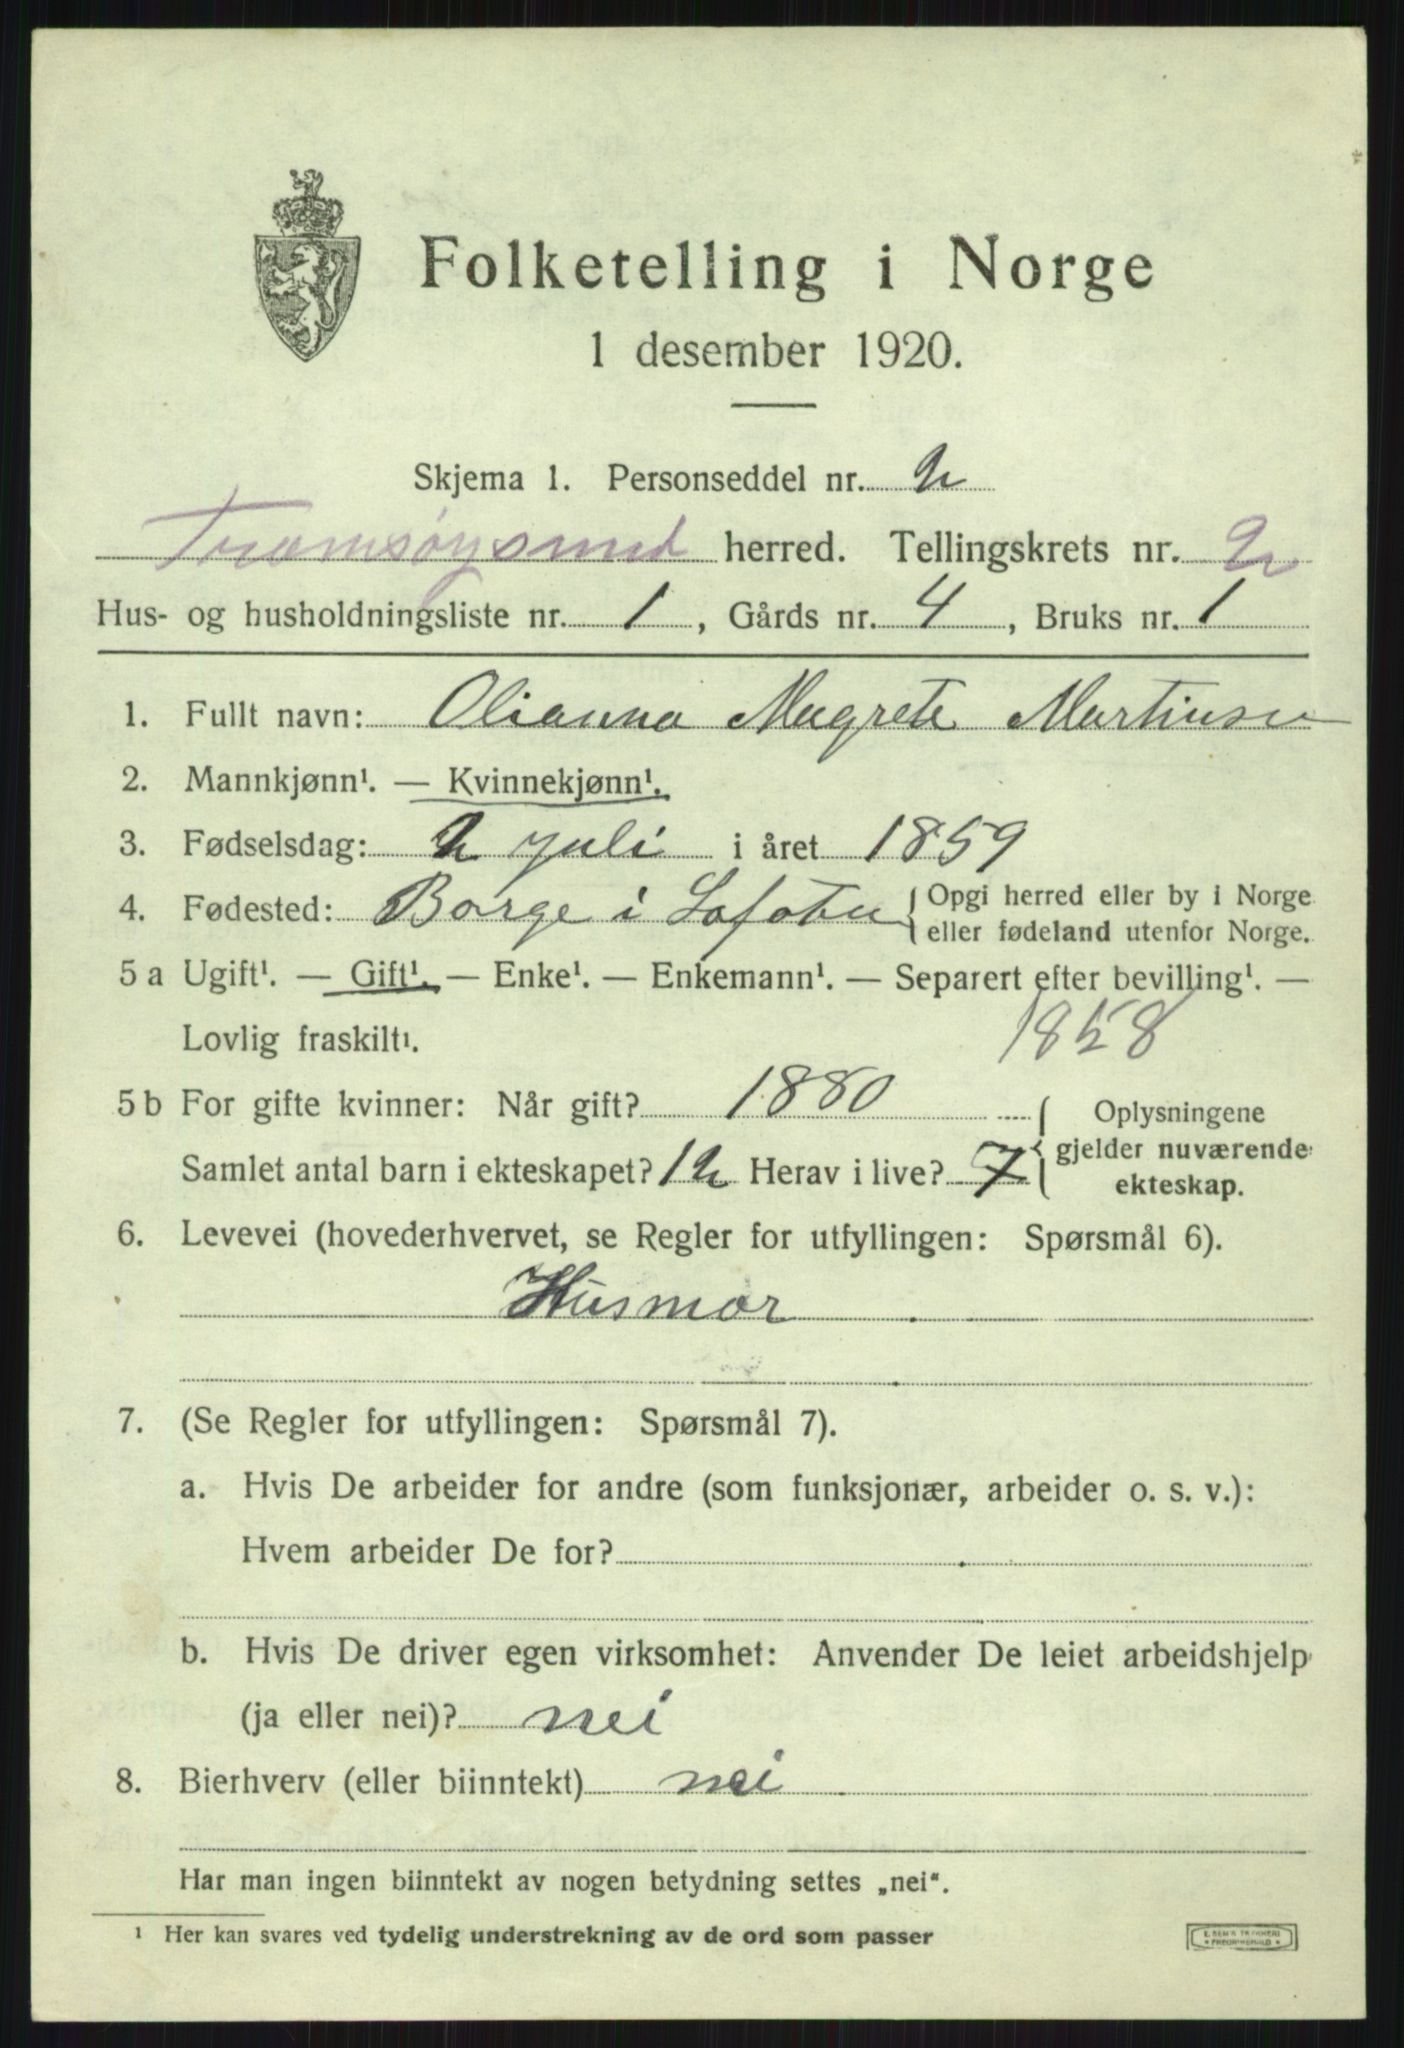 Folketelling i Norge
1 desember 1920.
Skjema 1. Personseddel nr. 2
Tromsøysund herred. Tellingskrets nr. 2
Hus- og husholdningsliste nr. 1, Gårds nr. 4, Bruks nr. 1
1. Fullt navn: Olianna Magrete Martinsen
2. Mannkjønn¹. — Kvinnekjønn¹.
3. Fødselsdag: 2 juli i året 1859
4. Fødested: Borge i Lofoten { Opgi herred eller by i Norge
eller fødeland utenfor Norge.
5 a Ugift¹. — Gift¹. — Enke¹. — Enkemann¹. — Separert efter bevilling¹. —
Lovlig fraskilt¹. 1858
5 b For gifte kvinner: Når gift? 1880
Samlet antal barn i ekteskapet? 12 Herav i live? 7
{ Oplysningene
gjelder nuværende
ekteskap.
6. Levevei (hovederhvervet, se Regler for utfyllingen: Spørsmål 6).
Husmor
7. (Se Regler for utfyllingen: Spørsmål 7).
a. Hvis De arbeider for andre (som funksjonær, arbeider o. s. v.):
Hvem arbeider De for?
b. Hvis De driver egen virksomhet: Anvender De leiet arbeidshjelp
(ja eller nei)? nei
8. Bierhverv (eller biinntekt) nei
Har man ingen biinntekt av nogen betydning settes „nei“.
¹ Her kan svares ved tydelig understrekning av de ord som passer